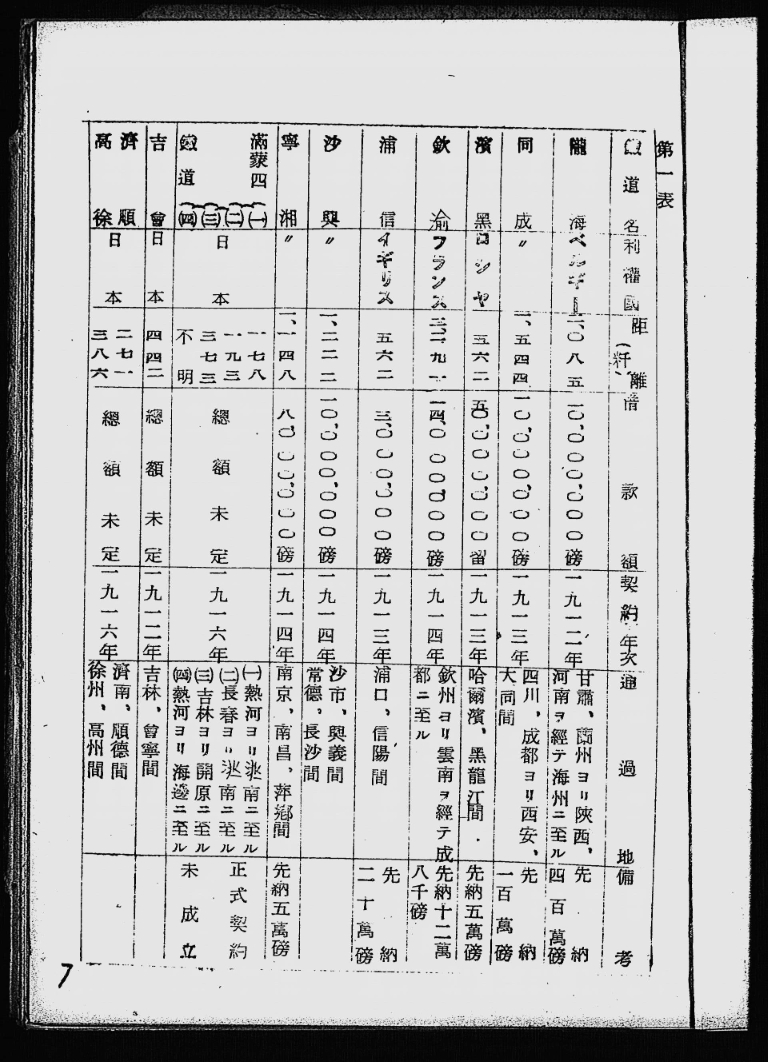 第一表
鐵道名
利權國
距離(粁)
借款額
契約年次
通過地
備考
隴海
ベルギー
二、〇八五
一〇、〇〇〇、〇〇〇磅
一九一二年
甘肅、蘭州ヨリ陝西、
河南ヲ經テ海州ニ至ル
先納
四百萬磅
同成
〃
一、五四四
一〇、〇〇〇、〇〇〇磅
一九一三年
四川、成都ヨリ西安、
大同間
先納
一百萬磅
濱黑
ロシヤ
五六二
五〇、〇〇〇、〇〇〇留
一九一三年
哈爾濱、黑龍江間.
先納五萬磅
欽渝
フランス
三、二九一
二四、〇〇〇、〇〇〇磅
一九一四年
欽州ヨリ雲南ヲ經テ成
都ニ至ル
先納十二萬
八千磅
浦信
イギリス
五六二
三、〇〇〇、〇〇〇磅
一九一三年
浦口、信陽間
先納
二十萬磅
沙興
〃
一、二二二
一〇、〇〇〇、〇〇〇磅
一九一四年
沙市、興義間
常德、長沙間
寧湘
〃
一、一四八
八、〇〇〇、〇〇〇磅
一九一四年
南京、南昌、萍鄉間
先納五萬磅
滿蒙四
鐵道
(一)
(二)
(三)
(四)
日本
一七八
一九三
三七三
不明
總額未定
一九一六年
(一)熱河ヨリ洮南ニ至ル
(二)長春ヨリ洮南ニ至ル
(三)吉林ヨリ開原ニ至ル
(四)熱河ヨリ海邊ニ至ル
正式契約
未成立
吉會
日本
四四二
總額未定
一九一二年
吉林、會寧間
濟順
高徐
日本
二七一
三八六
總額未定
一九一六年
濟南、順德間
徐州、高州間
7